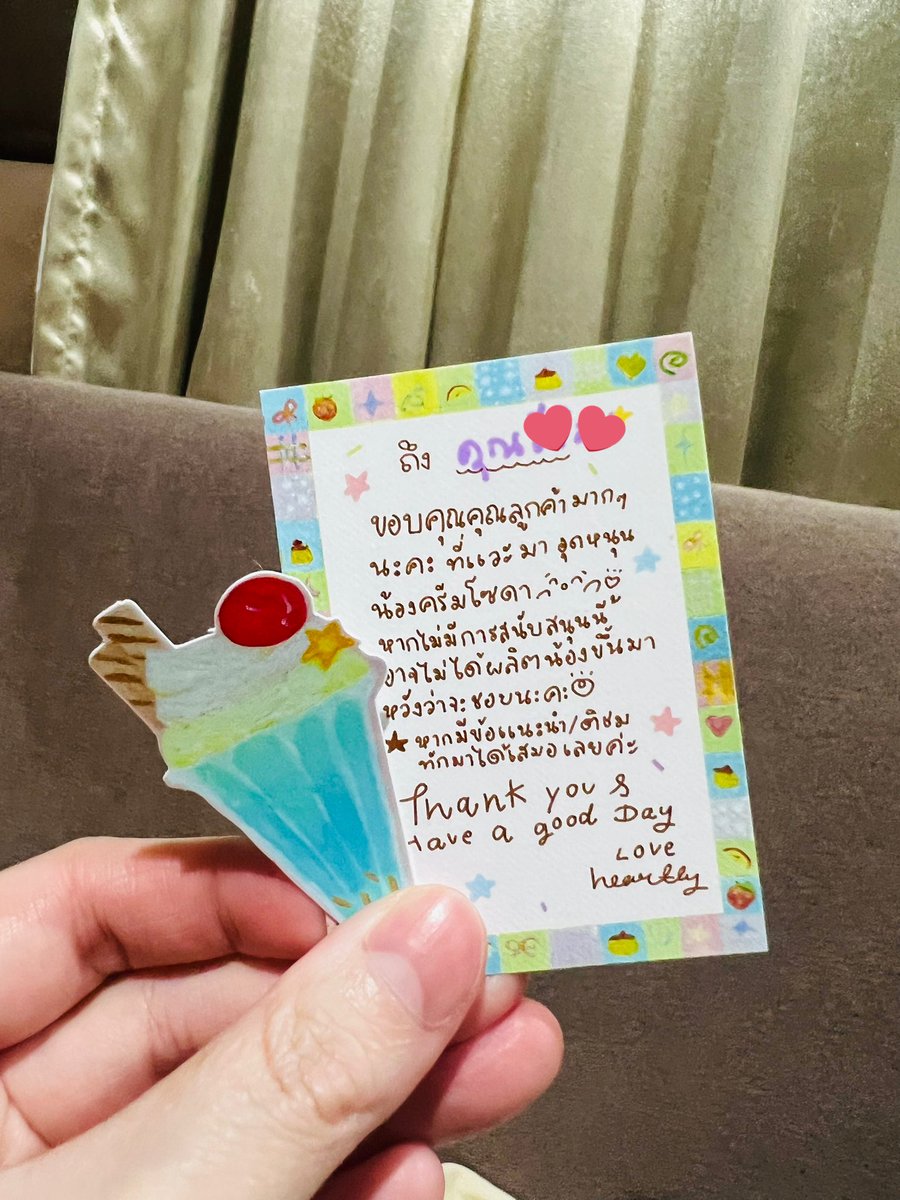 ถึง คุณ
ขอบคุณคุณลูกค้ามากๆ
นะคะ ที่แวะมาอุดหนุน
น้องครีมโซดา
หากไม่มีการสนับสนุนนี้
อาจไม่ได้ผลิตน้องขึ้นมา
หวังว่าจะชอบนะคะ
หากมีข้อแนะนำ/ติชม
ทักมาได้เสมอเลยค่ะ
Thank you &
Have a good Day
Love
heartly